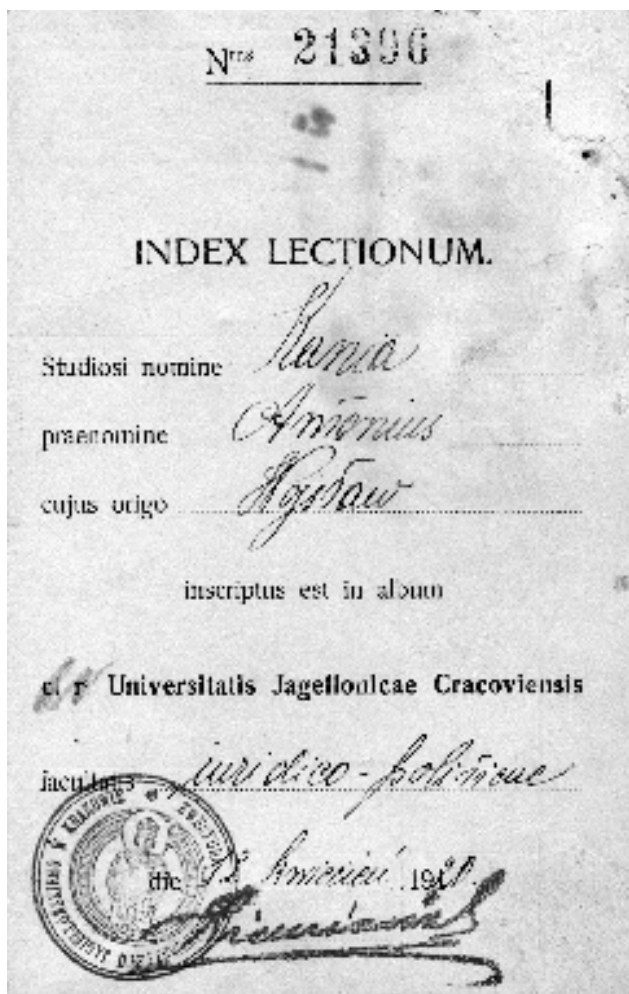 Nrus 21396
INDEX LECTIONUM.
Studiosi nomine Kania
praenomine Antonius
cujus origo
inscriptus est in album
c. r Universitatis Jagellonicae Cracoviensis
facultatis iuridico-politicae
die 12 kwiecień 1920